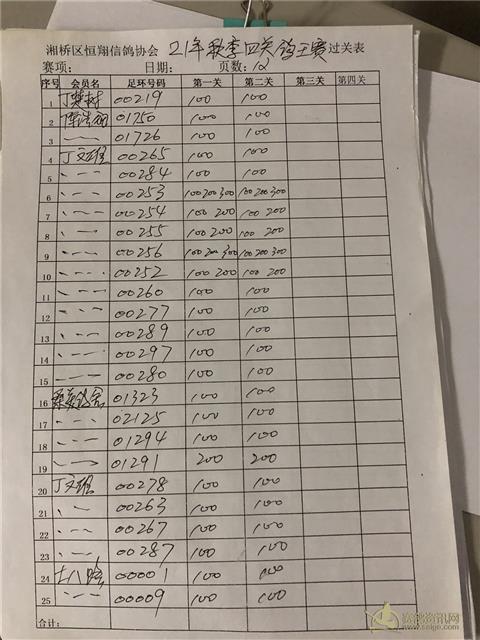 湘桥区恒翔信鸽协会 21年秋季四关鸽王赛过关表
赛项: 日期: 页数: 12
序号 会员名 足环号码 第一关 第二关 第三关 第四关
1 丁楚树 00219 100 100
2 01750 100 100
3 〃 01726 100 100
4 丁文雄 00265 100 100
5 〃 00284 100 100
6 〃 00253 100 200 300 100 200 300
7 〃 00254 100 200 100 200
8 〃 00255 100 200 100 200
9 〃 00256 100 200 300 100 200 300
10 〃 00252 100 200 100 200
11 〃 00260 100 100
12 〃 00277 100 100
13 〃 00289 100 100
14 〃 00297 100 100
15 〃 00280 100 100
16 01323 100 100
17 〃 02125 100 100
18 〃 01294 100 100
19 〃 01291 200 200
20 丁文雄 00278 100 100
21 〃 00263 100 100
22 〃 00267 100 100
23 〃 00287 100 100
24 00001 100 100
25 〃 00009 100 100
合计: